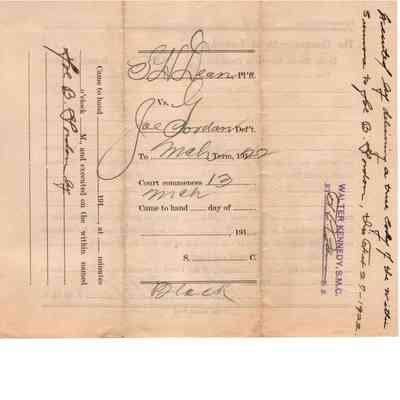 S. H. Dean, Pl'ff.
Vs.
Joe Gordan Def't.
To Mch Term, 1922
Court commences 13
Mch
Came to hand ___ day of ___
___, 191__
S. C.
Black
Came to hand ___ 191__, at ___ minutes
___ o'clock ___ M., and executed on the within named
Joe B. Gordon by
by delivering a true Copy of the within
to Joe B. Gordon, this Feb 29-1922
WALTER KENNEDY, S.M.C.
BY
D.S.